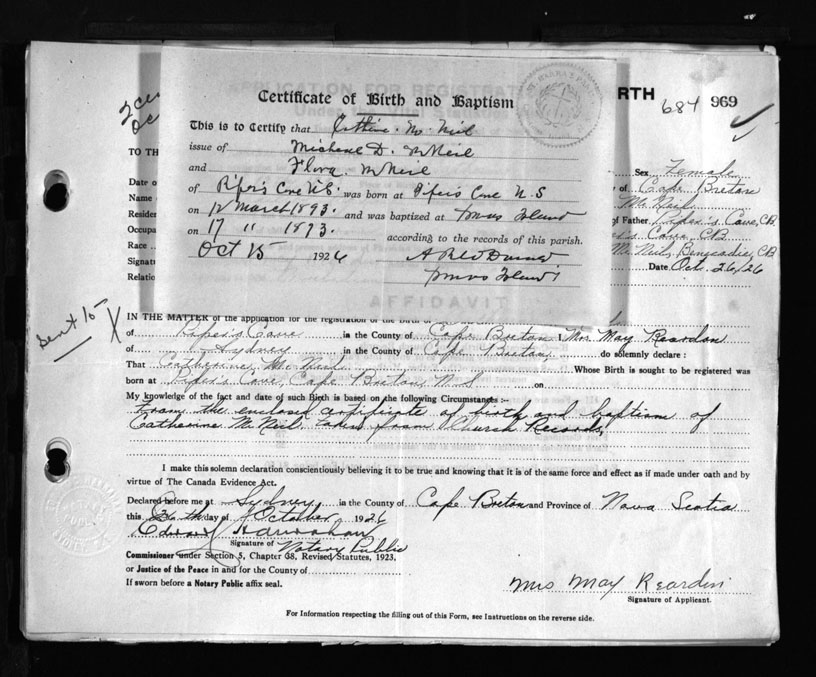 RTH
684 969
Certificate of Birth and Baptism
This is to Certify that Catherine Mc Neil
issue of Micheal D. McNeil
and Flora McNeil
of Piper's Cove N.S. was born at Piper's Cove N.S
on 12 March 1893. and was baptized at Iona Island
on 17 " 1893. according to the records of this parish.
Oct 15 1926
TO TH
Date o
Name
Residen
Occupa
Race
Signat
Relatio
Sex Female
y of Cape Breton
Mc Neil
of Father Piper's Cove, C.B.
's Cove, C.B.
Mc Neil, Benacadie, C.B
Date Oct. 26/26
AFFIDAVIT
sent 15 X
IN THE MATTER of the application for the registration of the birth of
of Piper's Cove in the County of Cape Breton I, Mrs May Reardon
of Sydney in the County of Cape Breton do solemnly declare :
That Catherine Mc Neil Whose Birth is sought to be registered was
born at Piper's Cove, Cape Breton, N.S on
My knowledge of the fact and date of such Birth is based on the following Circumstances :-
From the enclosed certificate of birth and baptism of
Catherine McNeil taken from Church Records.
I make this solemn declaration conscientiously believing it to be true and knowing that it is of the same force and effect as if made under oath and by
virtue of The Canada Evidence Act.
Declared before me at Sydney in the County of Cape Breton and Province of Nova Scotia
this 26th day of October 1926
Signature of Notary Public
Commissioner under Section 5, Chapter 38, Revised Statutes, 1923,
or Justice of the Peace in and for the County of
If sworn before a Notary Public affix seal.
Mrs May Reardon
Signature of Applicant.
For Information respecting the filling out of this Form, see Instructions on the reverse side.